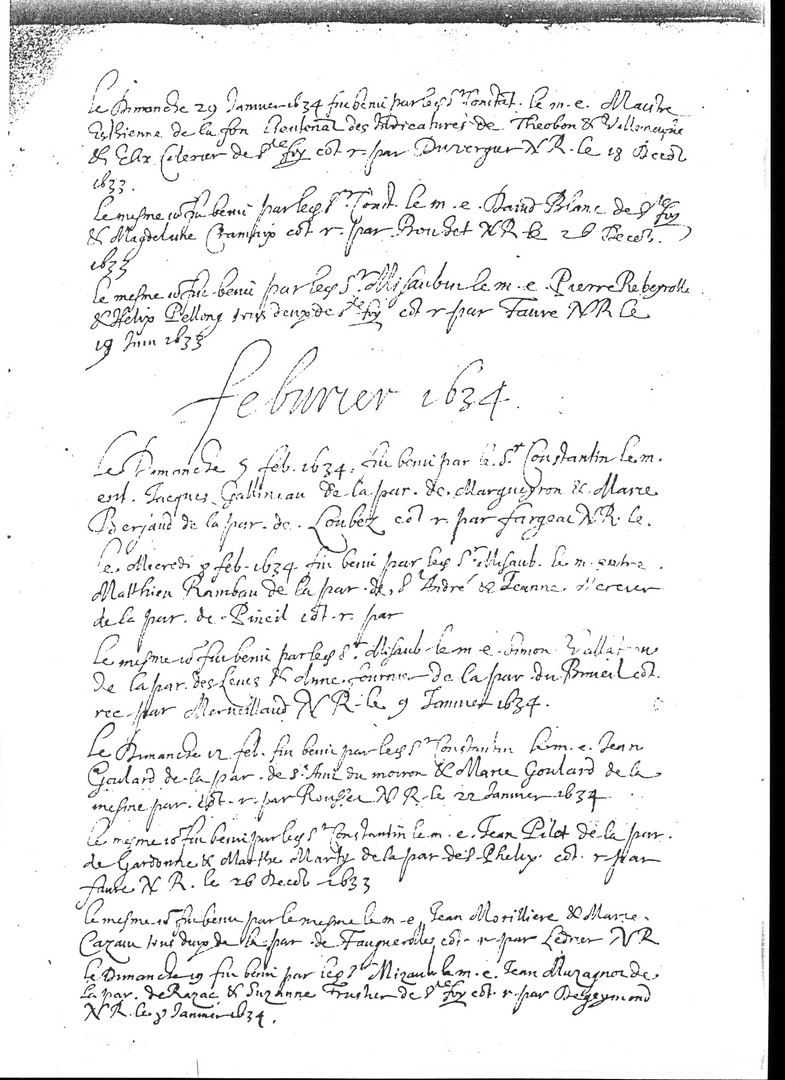 le Dimanche 29 Janvier 1634 fut beni par led Sr Constat. le m. e. Maistre
Esthienne de la fon Lieutenat des Judicatures de Theobon & Villeneufve
& Elix Celerier de Ste foy cot. r. par Duvergier N R. le 18 Decob
1633.
le mesme io fut beni par led Sr Const. le m. e. David Blanc de Ste foy
& Magdelaine par Boudet N R le 26 Decob.
1633
le mesme io fut beni par led Sr Misaubin le m. e. Pierre Rebeyrolle
& Helix Pellong tous deux de Ste foy cot r. par Faure N R le
19 Juin 1633
feburier 1634.
Le Dimanche 5 feb. 1634. fut beni par le Sr Constantin le m.
ent. Jacques Gallineau de la par. de Margueyron & Marie
Berjaud de la par. de Loubez cot r. par fargeac N R. le.
le Micredi 8 feb. 1634 fut beni par led Sr Misaub. le m. entre
Matthieu Rambau de la par. de St André & Jeanne
de la par. de Pineil cot. r. par
le mesme io fut beni par led Sr Misaub. le m e. Simon
de la par. des Leves & Anne fournier de la par du Brueil cot.
rec par Merveillaud N R. le 9 Janvier 1634.
Le Dimanche 12 feb. fut beni par led Sr Constantin le m. e. Jean
Goulard de la par. de St Avit du moiron & Marie Goulard de la
mesme par. cot. r. par Rousset N R. le 22 Janvier 1634
le mesme io fut beni par led Sr Constantin le m. e. Jean Pilot de la par.
de Gardonne & Marthe Marty de la par de St Phelix. cot. r par
faure N R. le 26 Decob 1633
le mesme io fut beni par le mesme le m e. Jean Morilliere & Marie
Cazau tous deux de la par. de Faugnerolles cot. r par Ledrier N R
le Dimanche 19 fut beni par led Sr Mizaub le m. e. Jean Muzagnot de
la par. de Razac & Suzanne Trusher de Ste foy cot. r. par Degeymond
N R. le 8 Janvier 1634.